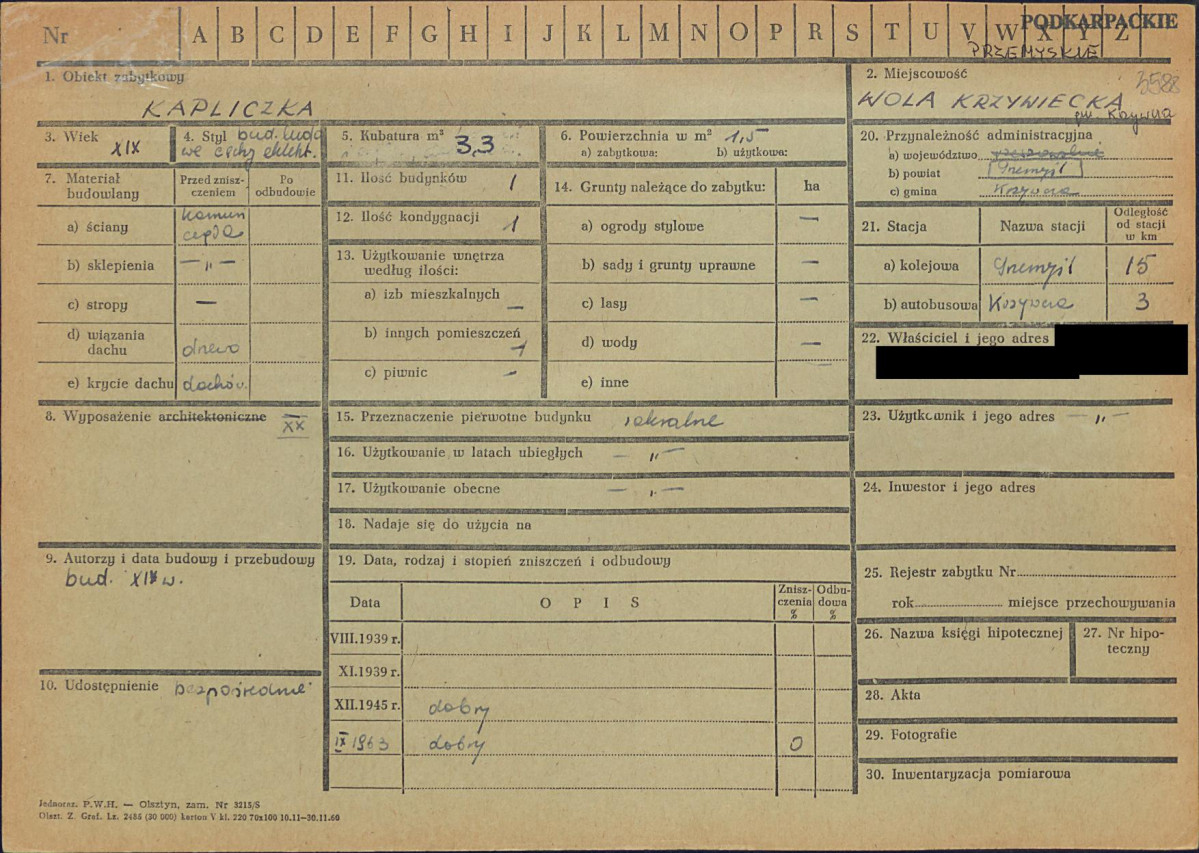 Nr A B C D E F G H I J K L M N O P R S T U V W X Y Z
PODKARPACKIE
PRZEMYSKIE
1. Obiekt zabytkowy
KAPLICZKA
2. Miejscowość
3588
WOLA KRZYWIECKA
gm. Krzywcza
3. Wiek
XIX
4. Styl bud. ludo
we cechy eklekt.
5. Kubatura m³
3,3
6. Powierzchnia w m² 1,5
a) zabytkowa: b) użytkowa:
7. Materiał
budowlany
Przed znisz-
czeniem
Po
odbudowie
a) ściany
kamień
cegła
b) sklepienia — „ —
c) stropy —
d) wiązania
dachu drewo
e) krycie dachu dachów.
8. Wyposażenie architektoniczne XX
9. Autorzy i data budowy i przebudowy
bud. XIX w.
10. Udostępnienie bezpośrednie
11. Ilość budynków 1
12. Ilość kondygnacji 1
13. Użytkowanie wnętrza
według ilości:
a) izb mieszkalnych —
b) innych pomieszczeń 1
c) piwnic —
14. Grunty należące do zabytku: ha
a) ogrody stylowe —
b) sady i grunty uprawne —
c) lasy —
d) wody —
e) inne
15. Przeznaczenie pierwotne budynku sakralne
16. Użytkowanie w latach ubiegłych — „ —
17. Użytkowanie obecne — „ —
18. Nadaje się do użycia na
19. Data, rodzaj i stopień zniszczeń i odbudowy
Data OPIS Znisz-
czenia
% Odbu-
dowa
%
VIII.1939 r.
XI.1939 r.
XII.1945 r. dobry
IX 1963 dobry 0
20. Przynależność administracyjna
a) województwo rzeszowskie
b) powiat Przemyśl
c) gmina Krzywcza
21. Stacja Nazwa stacji Odległość
od stacji
w km
a) kolejowa Przemyśl 15
b) autobusowa Krzywcza 3
22. Właściciel i jego adres
23. Użytkownik i jego adres — „ —
24. Inwestor i jego adres
25. Rejestr zabytku Nr
rok miejsce przechowywania
26. Nazwa księgi hipotecznej
27. Nr hipo-
teczny
28. Akta
29. Fotografie
30. Inwentaryzacja pomiarowa
Jednoraz. P.W.H. — Olsztyn, zam. Nr 3215/S
Olszt. Z. Graf. Lz. 2486 (30 000) karton V kl. 220 70x100 10.11—30.11.60